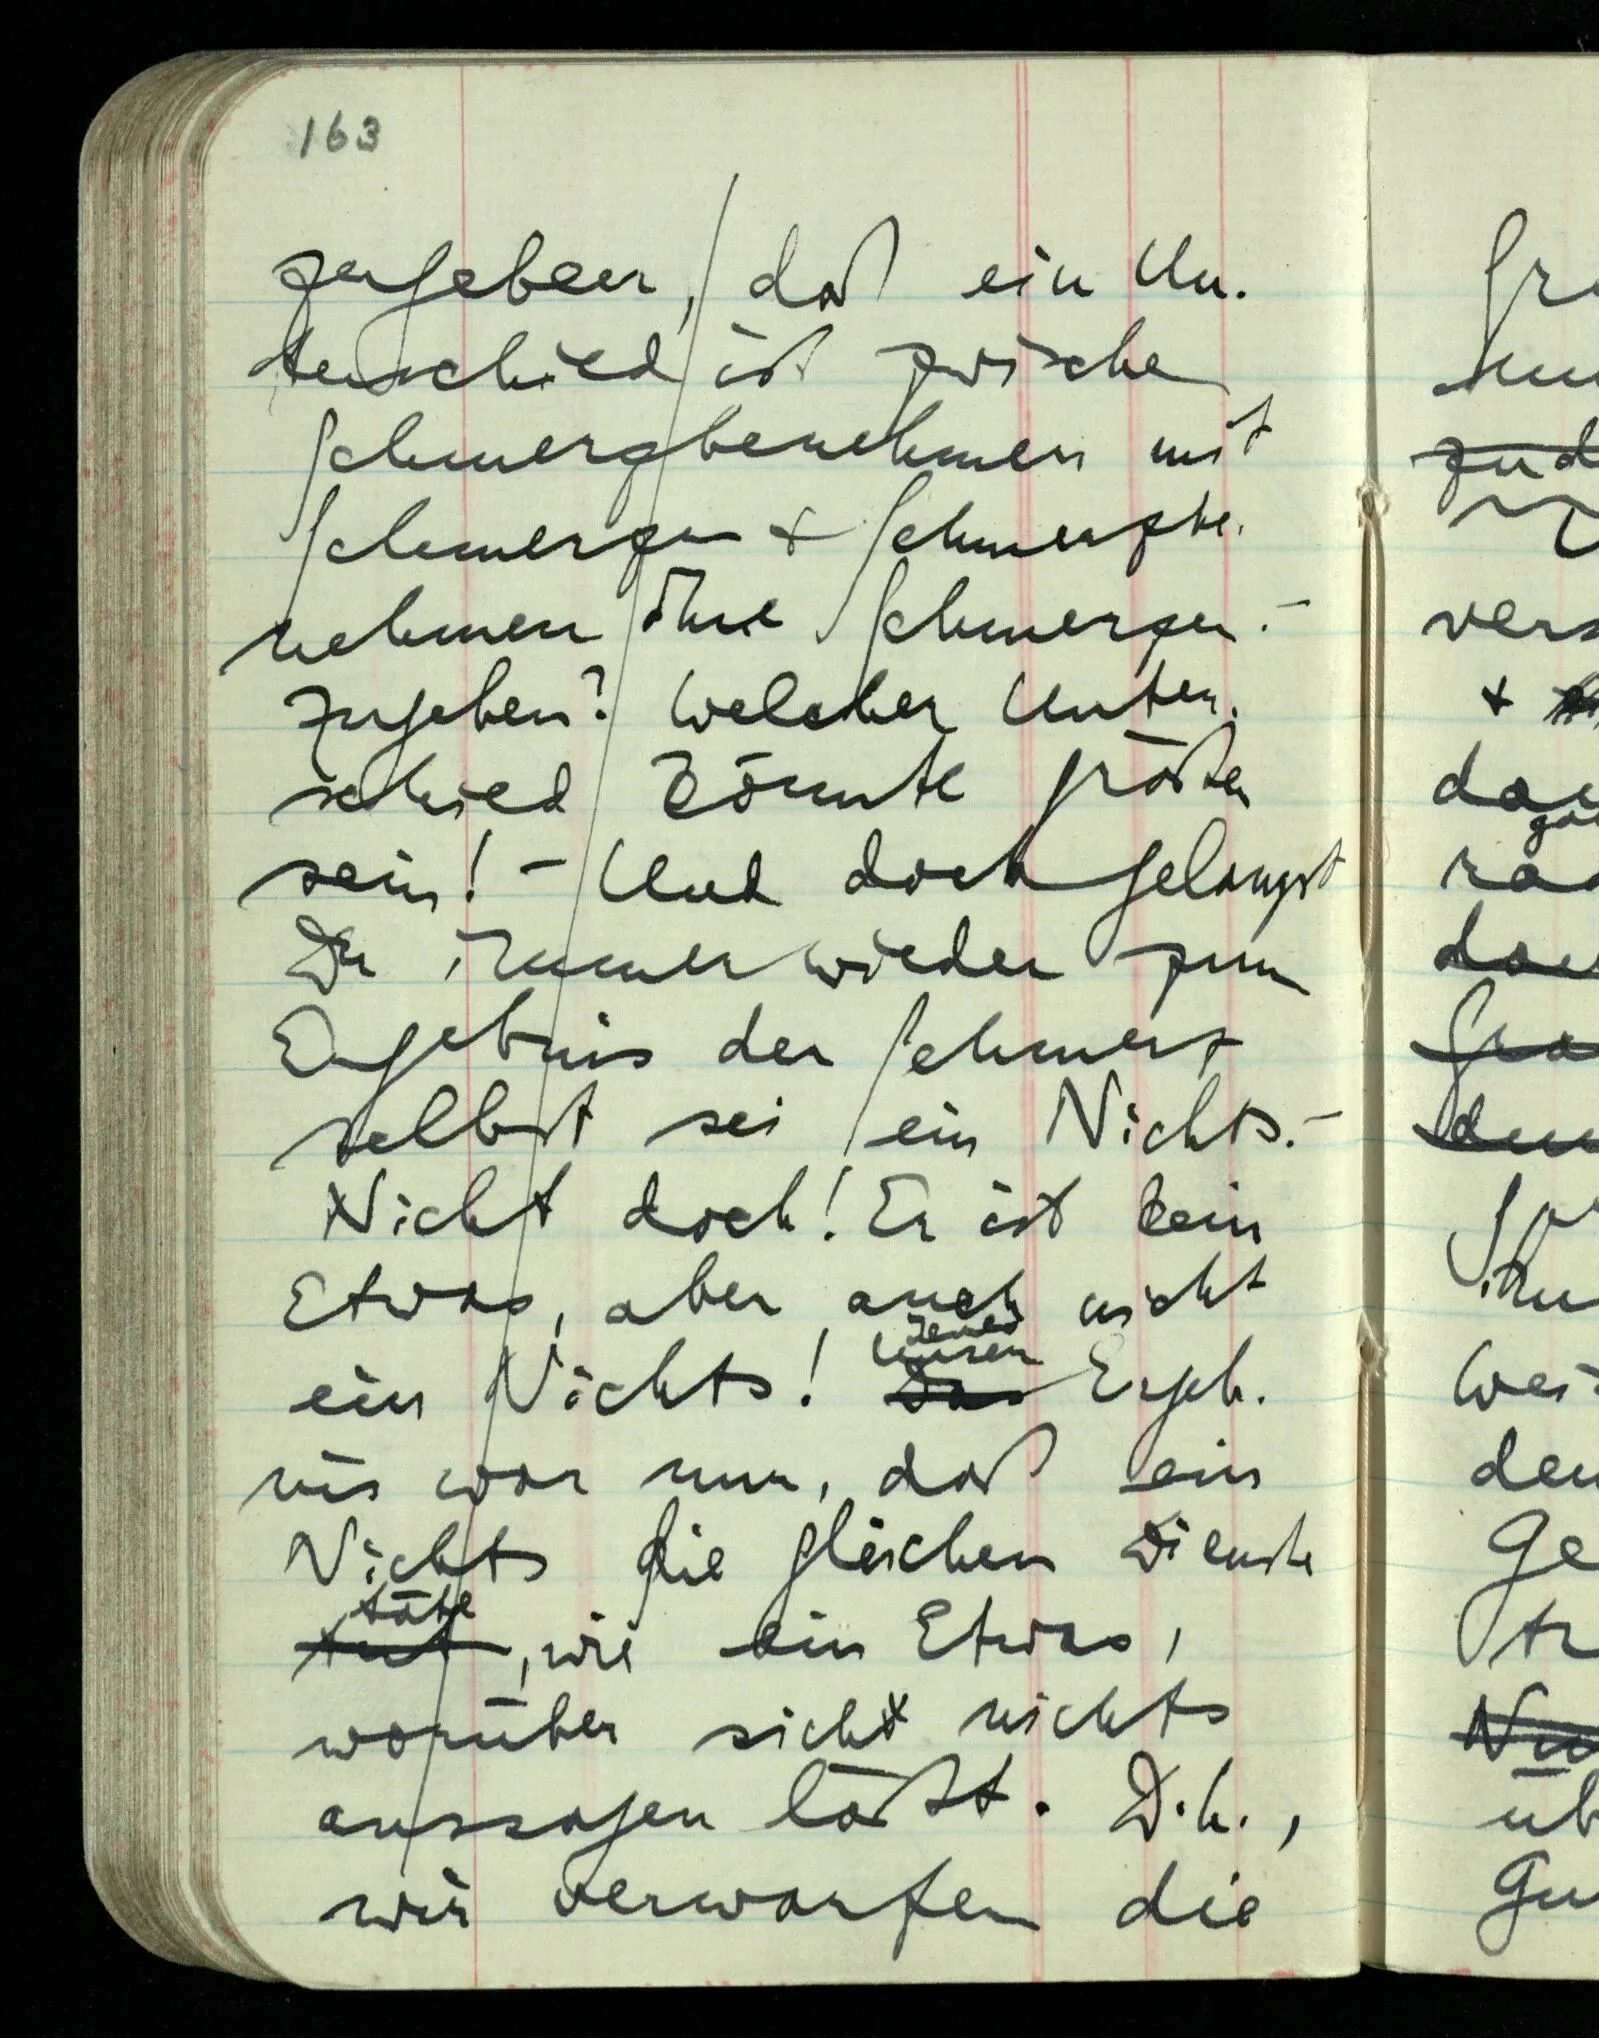 163
zugeben, daß ein Un-
terschied ist zwischen
Schmerzbenehmen mit
Schmerzen & Schmerzbe-
nehmen ohne Schmerzen.–
Zugeben? Welcher Unter-
schied könnte größer
sein! – Und doch gelangst
Du immer wieder zum
Ergebnis der Schmerz
selbst sei ein Nichts. –
Nicht doch! Er ist kein
Etwas, aber auch nicht
jenes
Unser
ein Nichts! Das Ergeb-
nis war nur, daß ein
Nichts die gleichen Dienste
täte
tut, wie ein Etwas,
worüber sich nichts
aussagen läßt. D.h.,
wir verwarfen die
vers
&
Ge
üb